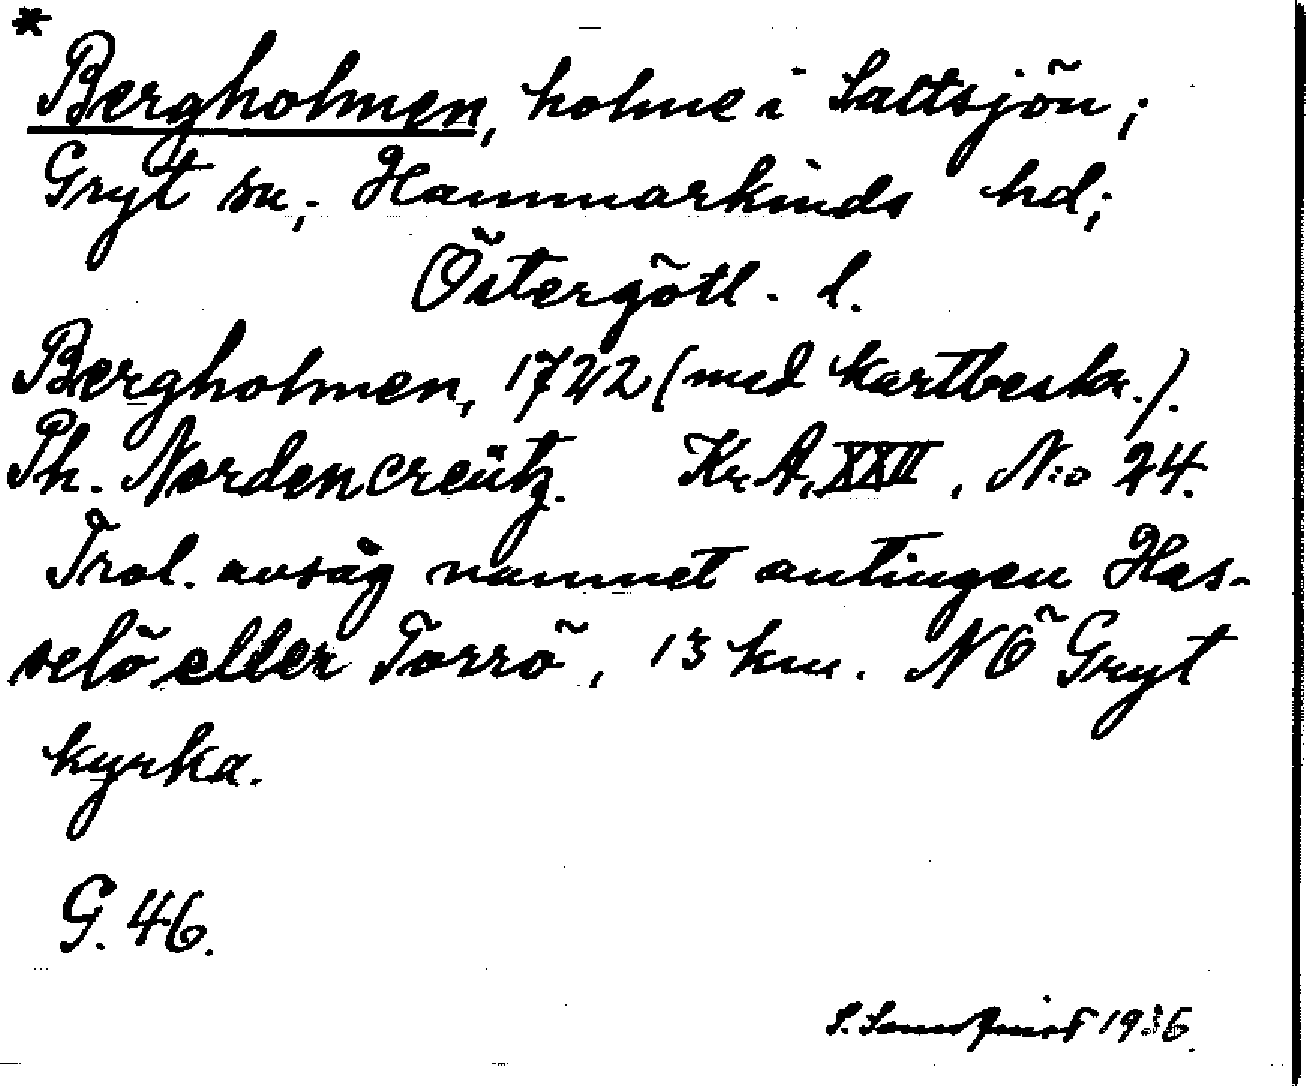 *
Bergholmen, holme i Saltsjön;
Gryt sn; Hammarkinds hd;
Östergötl. l.
Bergholmen, 1722 (med kartbeskr.).
Ph. Nordencreütz. Kr. A. XXII, N:o 24.
Trol. avsåg namnet antingen Has-
selö eller Torrö, 13 km. NÖ Gryt
kyrka.
G. 46.
1936.